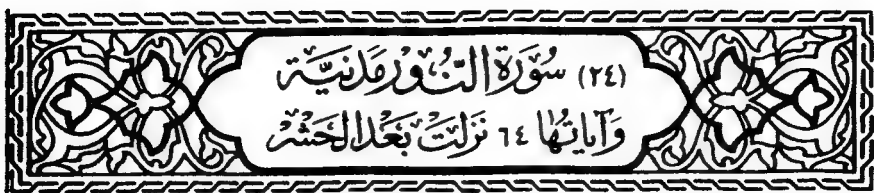 (٢٤) سُورَةُ النُّورِ مَدَنِيَّة
وَآيَاتُهَا ٦٤ نَزَلَتْ بَعْدَ الحَشْرِ